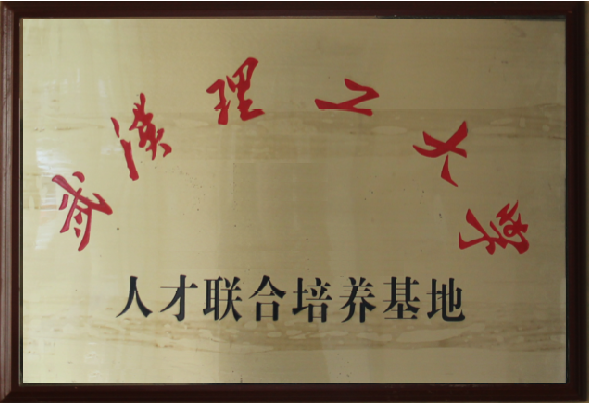 武汉理工大学
人才联合培养基地